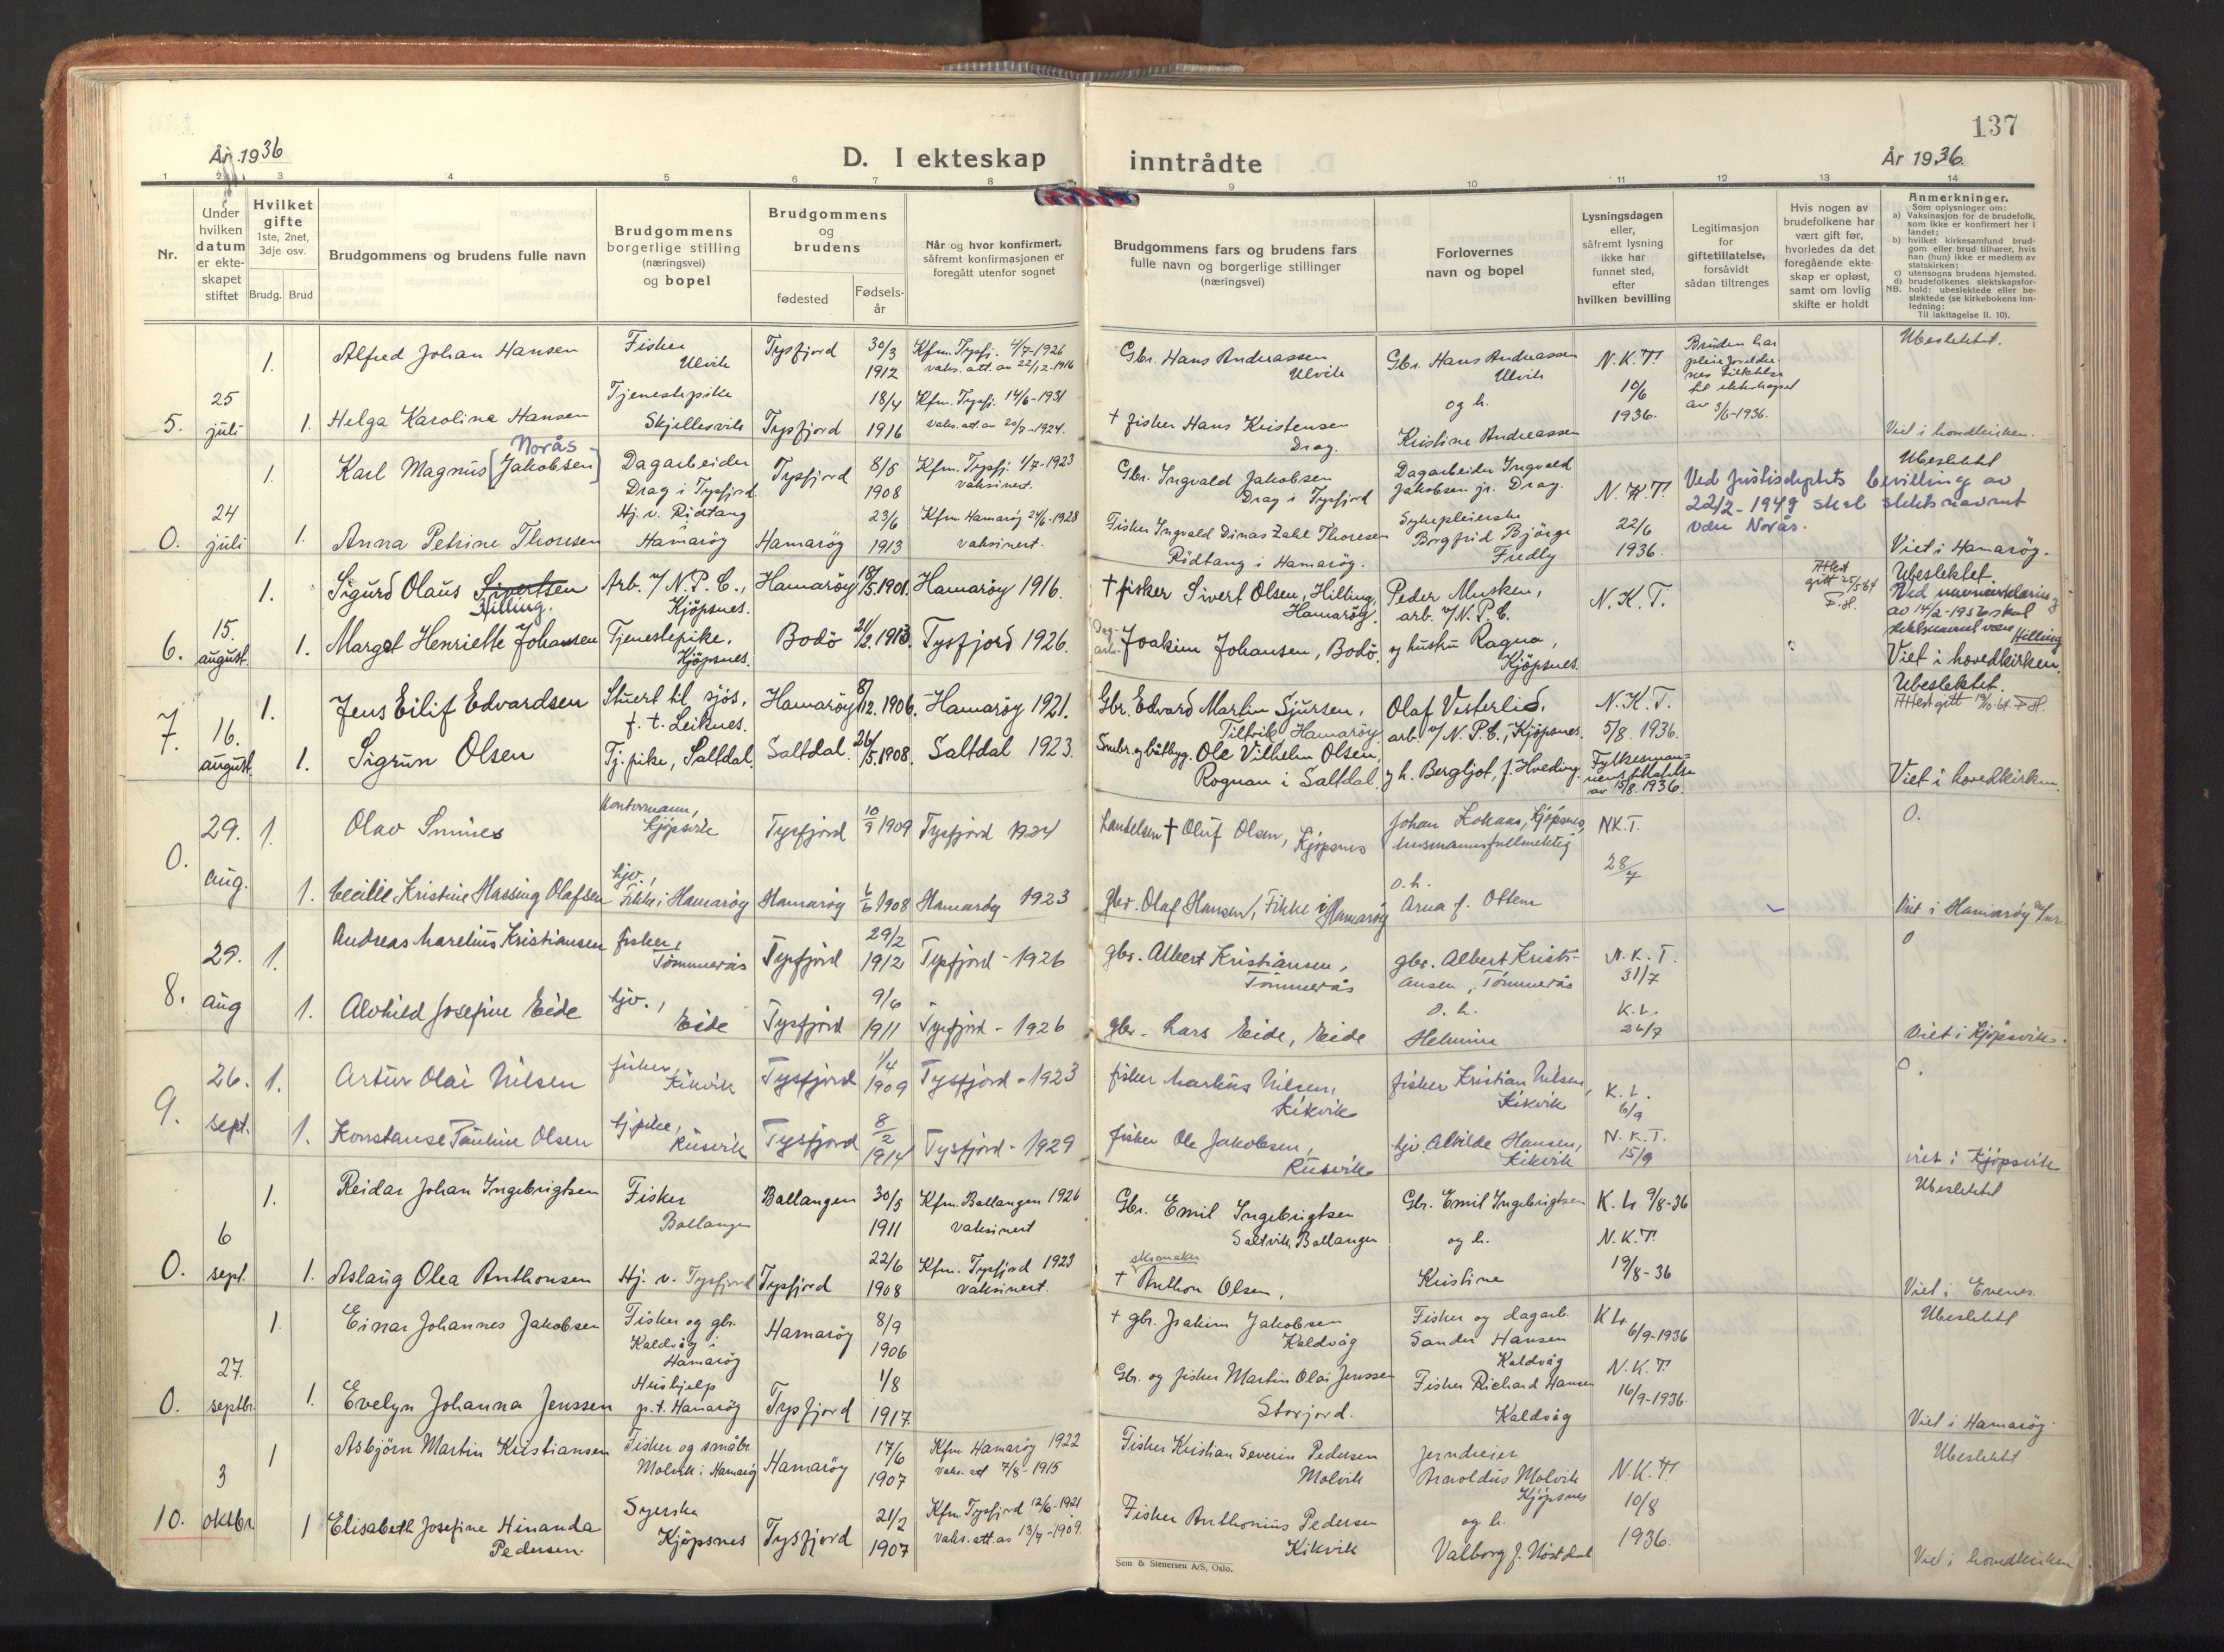 137
År 1936
D. I ekteskap inntrådte
År 1936.
1 2 3 4 5 6 7 8 9 10 11 12 13 14
Nr.
Under
hvilken
datum
er ekte-
skapet
stiftet
Hvilket
gifte
1ste, 2net,
3dje osv.
Brudg. Brud
Brudgommens og brudens fulle navn
Brudgommens
borgerlige stilling
(næringsvei)
og bopel
Brudgommens
og
brudens
fødested
Fødsels-
år
Når og hvor konfirmert,
såfremt konfirmasjonen er
foregått utenfor sognet
Brudgommens fars og brudens fars
fulle navn og borgerlige stillinger
(næringsvei)
Forlovernes
navn og bopel
Lysningsdagen
eller,
såfremt lysning
ikke har
funnet sted,
efter
hvilken bevilling
Legitimasjon
for
giftetillatelse,
forsåvidt
sådan tiltrenges
Hvis nogen av
brudefolkene har
vært gift før,
hvorledes da det
foregående ekte-
skap er opløst,
samt om lovlig
skifte er holdt
Anmerkninger.
Som oplysninger om:
a) Vaksinasjon for de brudefolk,
som ikke er konfirmert her i
landet;
b) hvilket kirkesamfund brud-
gom eller brud tilhører, hvis
han (hun) ikke er medlem av
statskirken;
c) utensogns brudens hjemsted.
d) brudefolkenes slektskapsfor-
NB. hold: ubeslektede eller be-
slektede (se kirkebokens inn-
ledning:
Til iakttagelse II. 10).
5. 25
juli
1. Alfred Johan Hansen
Fisker
Ulvik
Tysfjord
30/3
1912
Kfm. Tysfj. 4/7-1926
Vaks. att. av 22/12-1916
Gbr. Hans Andreassen
Ulvik
Gbr. Hans Andreassen
Ulvik
og h.
Kristine Andreassen
N.K.T.
10/6
1936.
Bruden har
av 3/6-1936.
Ubeslektet.
1. Helga Karoline Hansen
Tjenestepike
Skjellesvik
Tysfjord
18/4
1916
Kfm. Tysfj. 14/6-1931
Vaks. att. av 20/7-1924.
† fisker Hans Kristensen
Drag.
Viet i hovedkirken.
0. 24
juli
1. Karl Magnus [Jakobsen]
Norås
Dagarbeider
Drag i Tysfjord.
Tysfjord
8/5
1908
Kfm. Tysfj. 1/7-1923
Vaksinert.
Gbr. Ingvald Jakobsen
Drag i Tysfjord
Dagarbeider Ingvald
Jakobsen jr. Drag.
N.K.T.
22/6
1936.
Ved Justisdeptets bevilling av
22/2-1949 skal slektsnavnet
være Norås.
Ubeslektet
1. Anna Petrine Thoresen
Hj. v. Ridtang
i
Hamarøy
Hamarøy
23/6
1913
Kfm. Hamarøy 24/6-1928
Vaksinert.
Fisker Ingvald Dinas Zahl Thoresen
Ridtang i Hamarøy.
Sykepleierske
Borgfrid Bjørge
Fredly
Viet i Hamarøy.
6. 15.
august.
1. Sigurd Olaus Sivertsen
Hilling.
Arb. v/ N.P.C.,
Kjøpsnes.
Hamarøy
18/5.1901.
Hamarøy 1916.
† fisker Sivert Olsen, Hilling,
Hamarøy.
Peder Musken,
arb. v/N.P.C.
N.K.T.
Attest
gitt 25/5 64
F.H.
Ubeslektet.
Ved navneerklæring
av 14/2-1956 skal
slektsnavnet være
Hilling
1. Margot Henriette Johansen
Tjenestepike.
Kjøpsnes.
Bodø
21/2.1913.
Tysfjord 1926.
Dag-
arb. Joakim Johansen, Bodø.
og hustru Ragna,
Kjøpsnes.
Viet i hovedkirken.
7. 16.
august.
1. Jens Eilif Edvardsen
Stuert til sjøs,
f. t. Leiknes.
Hamarøy
8/12.1906.
Hamarøy 1921.
Gbr. Edvard Martin Sjursen,
Tiltvik Hamarøy
Olaf Vesterlid,
arb. v/ N.P.C., Kjøpsnes.
N.K.T.
5/8.1936.
Ubeslektet.
Attest gitt 19/10-64. F.H.
1. Sigrun Olsen
Tj. pike, Saltdal.
Saltdal.
26/5.1908.
Saltdal 1923.
Smbr. og båtbyg. Ole Vilhelm Olsen,
Rognan i Saltdal.
og h. Bergljot, f. Hveding.
Fylkesman-
nens tillatelse
av 15/8.1936.
Viet i hovedkirken.
0. 29.
aug.
1. Olav Smines
Kontormann,
Kjøpsvik
Tysfjord
10/9 1909
Tysfjord 1924
† Oluf Olsen,
Kjøpsnes
Johan Kjøpsnes,
NK.T.
28/7
0.
1. Cecilie Kristine Hassing Olafsen
hjv.,
Fikke i Hamarøy
Hamarøy
6/6 1908
Hamarøy 1923
gbr. Olaf Hansen, Fikke i Hamarøy
o.h.
Arna f. Ottem
Viet i Hamarøy
8. 29.
aug
1. Andreas Marelius Kristiansen
fisker,
Tømmerås
Tysfjord
29/2
1912
Tysfjord - 1926
gbr. Albert Kristiansen,
Tømmerås
gbr. Albert Kristi-
ansen, Tømmerås
o. h.
Helmine
N.K.T.
31/7
0
1. Alvhild Josefine Eide
hjv.,
Eide
Tysfjord
9/6
1911
Tysfjord - 1926
gbr. Lars Eide, Eide
K.L.
26/7
Viet i Kjøpsvik.
9. 26.
sept.
1. Artur Olai Nilsen
fisker,
Kikvik
Tysfjord
1/4
1909
Tysfjord - 1923
fisker Markus Nilsen,
Kikvik
fisker Kristian Nilsen,
Kikvik
K.L.
6/9
0.
1. Konstanse Pauline Olsen
tj.pike,
Rusvik
Tysfjord
8/2
1914
Tysfjord - 1929
fisker Ole Jakobsen,
Rusvik
hjv. Alvilde Hansen,
Kikvik
N.K.T.
15/9
viet i Kjøpsvik
0. 6
sept.
1. Reidar Johan Ingebrigtsen
Fisker
Ballangen
Ballangen
30/5
1911
Kfm. Ballangen 1926
Vaksinert
Gbr. Emil Ingebrigtsen
Saltvik, Ballangen
Gbr. Emil Ingebrigtsen
og h.
Kristine
K.L. 9/8-36
Ubeslektet
1. Aslaug Olea Anthonsen
Hj. v. Tysfjord
Tysfjord
22/6
1908
Kfm. Tysfjord 1923
Vaksinert.
skomaker
† Anthon Olsen.
N.K.T.
19/8-36
Viet i Evenes.
0. 27.
septbr.
1. Einar Johannes Jakobsen
Fisker og gbr.
Kaldvåg i
Hamarøy
Hamarøy
8/9
1906
† gbr. Joakim Jakobsen
Kaldvåg
Fisker og dagarb.
Sander Hansen
Kaldvåg
K.L.
6/9-1936
Ubeslektet
1. Evelyn Johanna Jenssen
Hushjelp
p.t. Hamarøy
Tysfjord
1/8
1917.
Gbr. og fisker Martin Olai Jenssen
Storjord.
Fisker Richard Hansen
Kaldvåg
N.K.T.
16/9-1936.
Viet i Hamarøy.
10. 3
oktbr.
1 Asbjørn Martin Kristiansen
Fisker og småbr.
Molvik i Hamarøy
Hamarøy
17/6
1907
Kfm. Hamarøy 1922
Vaks. att 7/8-1915
Fisker Kristian Severin Pedersen
Molvik
Jerndreier
Haroldus Molvik
Kjøpsnes
og h.
Valborg f. Nøstdal
N.K.T.
10/8
1936.
Ubeslektet
1 Elisabeth Josefine Hinanda
Pedersen.
Syerske
Kjøpsnes
Tysfjord
21/2
1907
Kfm. Tysfjord 12/6-1921
Vaks. att. av 13/7-1909.
Fisker Anthonius Pedersen
Kikvik
Viet i hovedkirken
Sem & Stenersen A/S, Oslo.